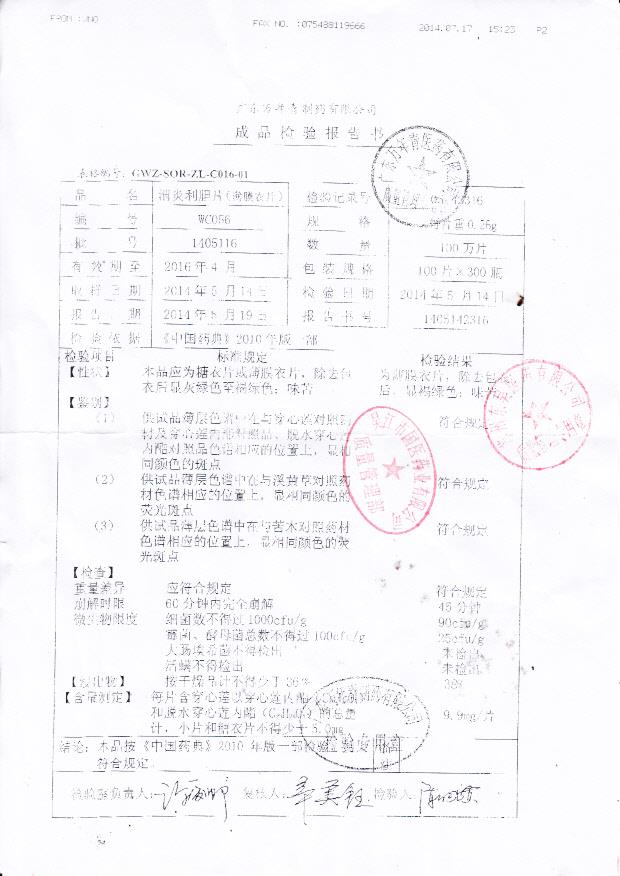 FROM :JNO FAX NO. :075488119666 2014.07.17 15:23 P2
广东万年青制药有限公司
成品检验报告书
表格编号: GWZ-SOR-ZL-C016-01
品名 消炎利胆片(薄膜衣片) 检验记录号
编号 WC056 规格 每片重0.26g
批号 1405116 数量 100万片
有效期至 2016年4月 包装规格 100片×300瓶
取样日期 2014年5月14日 检验日期 2014年5月14日
报告日期 2014年5月19日 报告书号 1405142316
检验依据 《中国药典》2010年版一部
检验项目 标准规定 检验结果
【性状】 本品应为糖衣片或薄膜衣片，除去包 为薄膜衣片，除去包衣
衣后显灰绿色至褐绿色；味苦 后，显褐绿色；味苦
【鉴别】
(1) 供试品薄层色谱中在与穿心莲对照药 符合规定
材及穿心莲内酯对照品、脱水穿心莲
内酯对照品色谱相应的位置上，显相
同颜色的斑点
(2) 供试品薄层色谱中在与溪黄草对照药 符合规定
材色谱相应的位置上，显相同颜色的
荧光斑点
(3) 供试品薄层色谱中在与苦木对照药材 符合规定
色谱相应的位置上，显相同颜色的荧
光斑点
【检查】
重量差异 应符合规定 符合规定
崩解时限 60分钟内完全崩解 45分钟
微生物限度 细菌数不得过1000cfu/g 90cfu/g
霉菌、酵母菌总数不得过100cfu/g 25cfu/g
大肠埃希菌不得检出 未检出
活螨不得检出 未检出
【浸出物】 按干燥品计不得少于36% 38%
【含量测定】 每片含穿心莲以穿心莲内酯
和脱水穿心莲内酯 的总量 9.9mg/片
计，小片和糖衣片不得少于5.0mg
结论：本品按《中国药典》2010年版一部检验
符合规定
检验室负责人: 复核人: 检验人:
吴江市国医药业有限公司
质量管理部